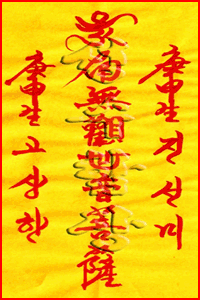 庚申生 진선미
無觀世音菩薩
庚申生 고상한